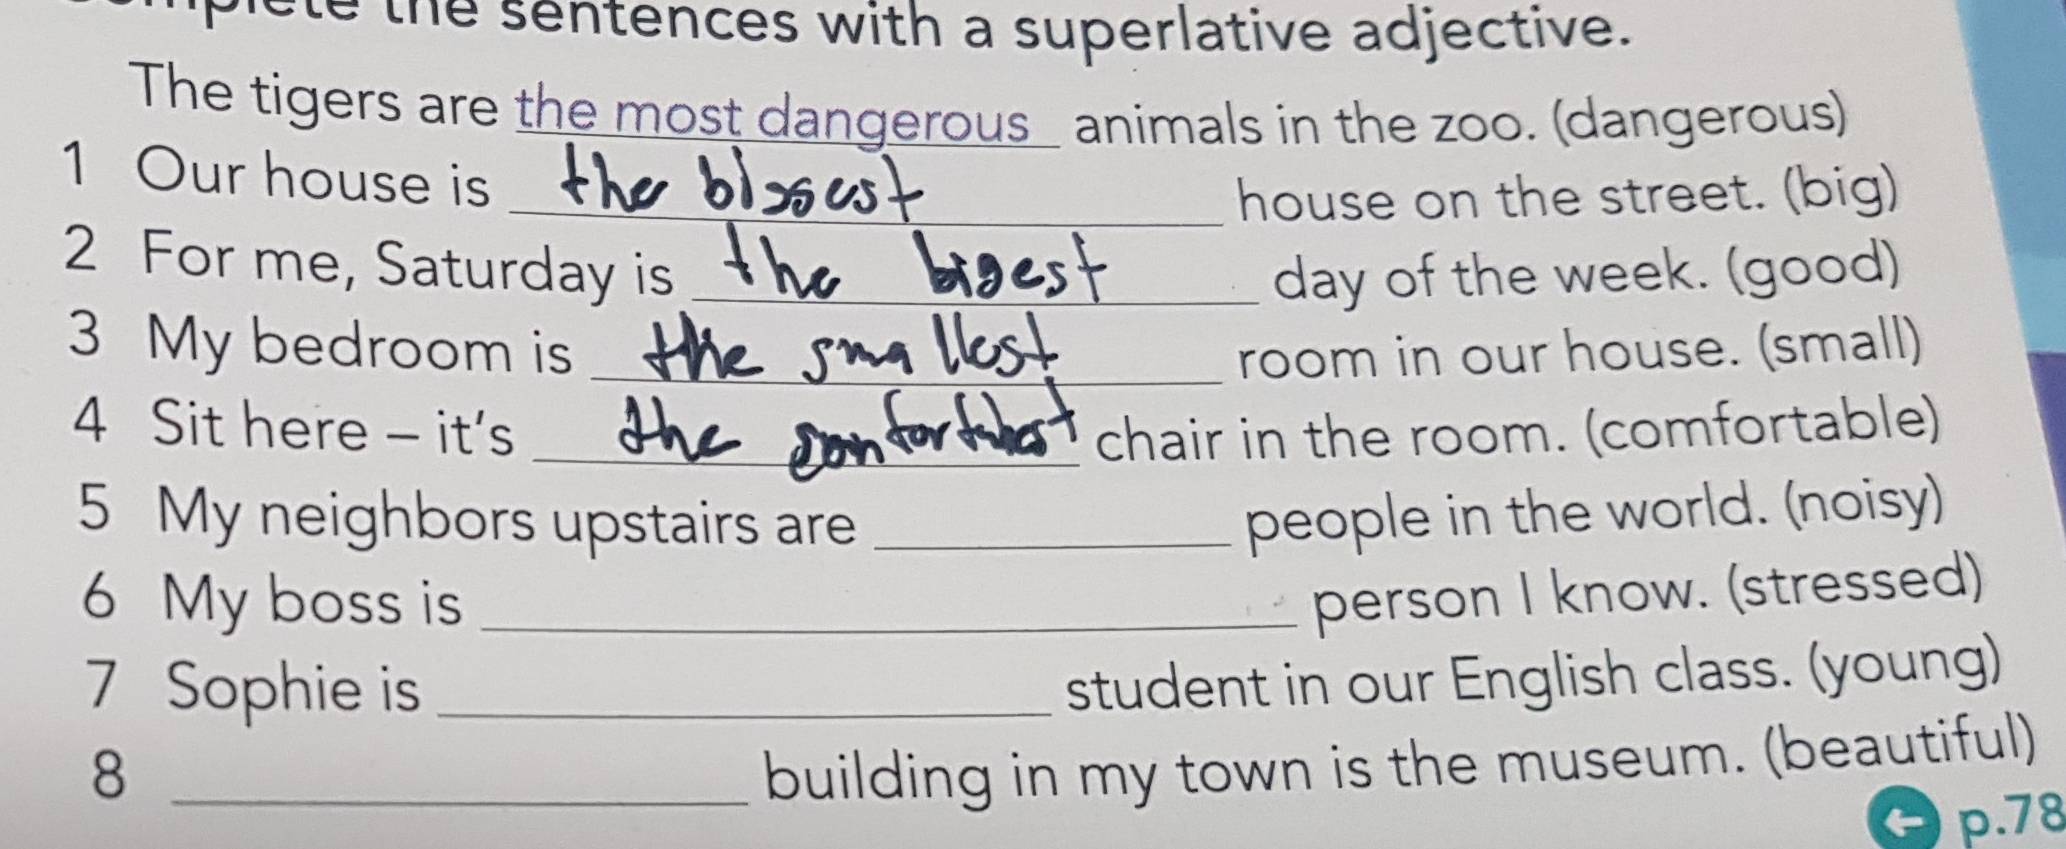 the sentences with a superlative adjective.
The tigers are the most dangerous animals in the zoo. (dangerous)
1 Our house is the house on the street. (big)
2 For me, Saturday is the bigest day of the week. (good)
3 My bedroom is the smallest room in our house. (small)
4 Sit here – it's the chair in the room. (comfortable)
5 My neighbors upstairs are people in the world. (noisy)
6 My boss is person I know. (stressed)
7 Sophie is student in our English class. (young)
8 building in my town is the museum. (beautiful)
← p.78